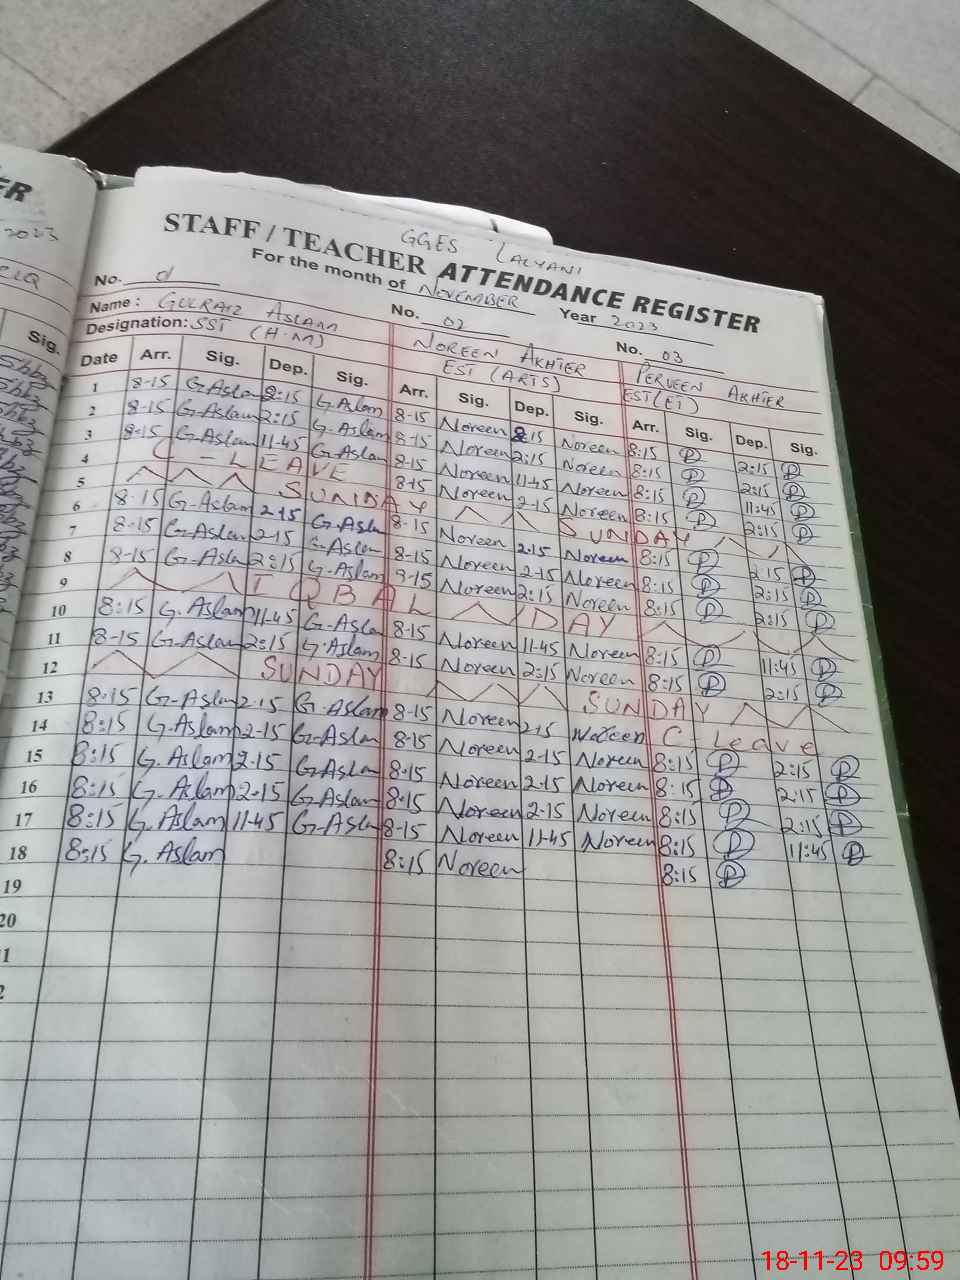 ER
2023
GGES LALYANI
STAFF / TEACHER ATTENDANCE REGISTER
For the month of NOVEMBER Year 2023
No. 01 No. 02 No. 03
Name: GULRAIZ ASLAM NOREEN AKHTER PERVEEN AKHTER
Designation: SST (H.M) EST (ARTS) EST(ET)
Sig.
Date Arr. Sig. Dep. Sig. Arr. Sig. Dep. Sig. Arr. Sig. Dep. Sig.
1 8-15 G.Aslam 2:15 G.Aslam 8-15 Noreen 2:15 Noreen 8:15 P 2:15 P
2 8-15 G.Aslam 2:15 G.Aslam 8-15 Noreen 2:15 Noreen 8:15 P 2:15 P
3 8-15 G.Aslam 11-45 G.Aslam 8-15 Noreen 11-45 Noreen 8:15 P 11:45 P
4 C-LEAVE 8-15 Noreen 2-15 Noreen 8:15 P 2:15 P
5 SUNDAY SUNDAY
6 8-15 G.Aslam 2-15 G.Asla 8-15 Noreen 2-15 Noreen 8:15 P 2:15 P
7 8-15 G.Aslam 2-15 G.Aslam 8-15 Noreen 2-15 Noreen 8:15 P 2:15 P
8 8-15 G.Aslam 2:15 G.Aslam 8-15 Noreen 2:15 Noreen 8:15 P 2:15 P
9 IQBAL DAY
10 8:15 G.Aslam 11-45 G-Asla 8-15 Noreen 11-45 Noreen 8:15 P 11:45 P
11 8-15 G-Aslam 2:15 G.Aslam 8-15 Noreen 2:15 Noreen 8:15 P 2:15 P
12 SUNDAY SUNDAY
13 8-15 G-Aslam 2-15 G-Aslam 8-15 Noreen 2-15 Noreen C-Leave
14 8:15 G.Aslam 2-15 G-Aslam 8-15 Noreen 2-15 Noreen 8:15 P 2:15 P
15 8:15 G.Aslam 2-15 G-Aslam 8-15 Noreen 2-15 Noreen 8:15 P 2:15 P
16 8:15 G.Aslam 2-15 G-Aslam 8-15 Noreen 2-15 Noreen 8:15 P 2:15 P
17 8:15 G.Aslam 11-45 G-Asla 8-15 Noreen 11-45 Noreen 8:15 P 11:45 P
18 8:15 G. Aslam 8:15 Noreen 8:15 P
19
20
1
2
18-11-23 09:59